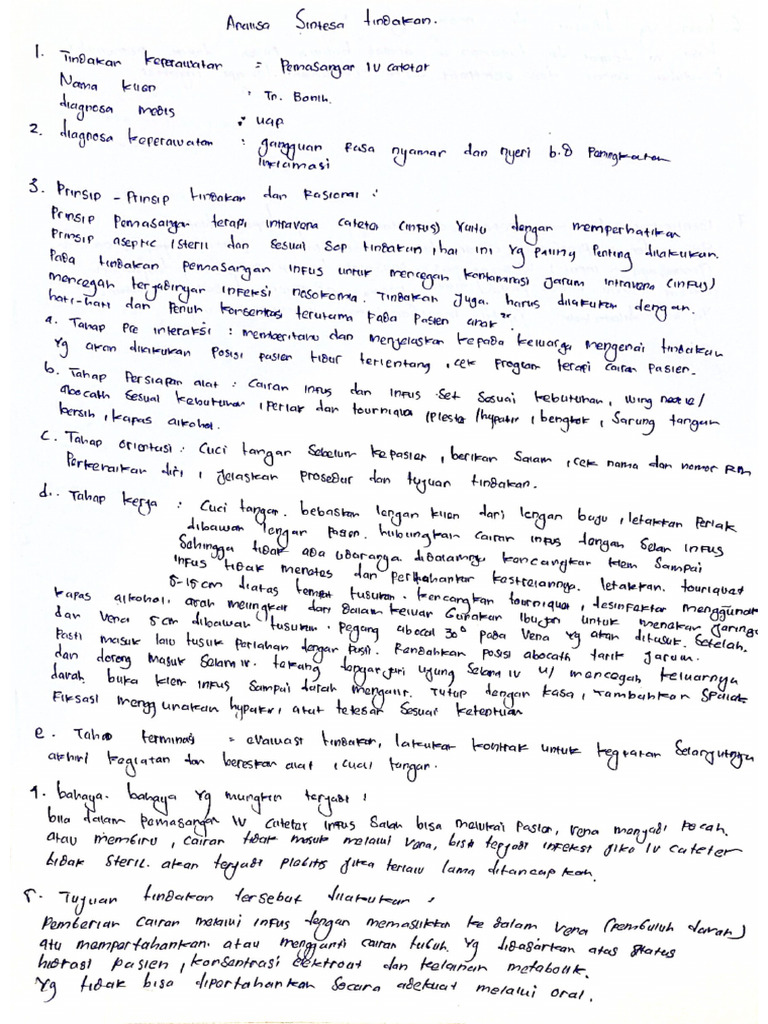 Analisa Sintesa tindakan.
1. Tindakan keperawatan = Pemasangan IV cateter
Nama klien : Tn. Bonih.
diagnosa medis : UAP
2. diagnosa keperawatan : gangguan rasa nyamar dan nyeri b.d Peningkatan
inflamasi
3. Prinsip - Prinsip tindakan dan Rasional :
Prinsip Pemasangan terapi intravena cateter (infus) yaitu dengan memperhatikan
Prinsip aseptic / steril dan sesuai sop tindakan, hal ini yg paling penting dilakukan.
Pada tindakan pemasangan infus untuk mencegah kontaminasi jarum intravena (infus)
mencegah terjadinya infeksi nosokomia. Tindakan juga harus dilakukan dengan.
hati-hati dan penuh konsentrasi terutama pada pasien anak".
a. Tahap Pre interaksi : memberitahu dan menjelaskan kepada keluarga mengenai tindakan
yg akan dilakukan posisi pasien tidur terlentang, cek program terapi cairan pasien.
b. Tahap Persiapan alat : Cairan infus dan infus set sesuai kebutuhan, wing needle/
abocath sesuai kebutuhan, Perlak dan tourniqua, Plester /hypafix, bengkok, Sarung tangan
bersih, kapas alkohol.
c. Tahap orientasi : Cuci tangan sebelum kepasien, berikan salam, cek nama dan nomor RM
Perkenalkan diri, jelaskan prosedur dan tujuan tindakan.
d. Tahap kerja : Cuci tangan. bebaskan lengan klien dari lengan baju, letakkan Perlak
dibawah lengan pasien. hubungkan cairan infus dengan selan infus
Sehingga tidak ada udaranya. didalamnya kencangkan klem sampai
infus tidak menetes dan pertahankan kesterilannya. letakkan. touriquat
5-15 cm diatas tempat tusukan. kencangkan tourniqua, desinfektan menggunakan
kapas alkohol. arah melingkar dari dalam keluar Gunakan ibu jari untuk menekan jaringan
dan vena 5cm dibawah tusukan. Pegang abocat 30° pada vena yg akan ditusuk. Setelah.
Pasti masuk lalu tusuk perlahan dengan pasti. Rendahkan posisi abocath tarik jarum.
dan dorong masuk selam iv. tekang dengan jari ujung selam IV u/ mencegah keluarnya
darah. buka klem infus sampai darah mengalir. Tutup dengan kasa, tambahkan spalak
Fiksasi menggunakan hypafix, atur tetesan sesuai ketentuan
e. Tahap terminasi = evaluasi tindakan, lakukan kontrak untuk kegiatan selanjutnya
akhiri kegiatan dan bereskan alat, cuci tangan.
4. bahaya. bahaya yg mungkin terjadi :
bila dalam pemasangan IV cateter infus salah bisa melukai pasien, vena menjadi pecah.
atau membiru, cairan tidak masuk melalui vena, bisa terjadi infeksi jika IV cateter
tidak steril. akan terjadi plebitis jika terlalu lama ditancapkan.
5. Tujuan tindakan tersebut dilakukan :
Pemberian cairan melalui infus dengan memasukkan ke dalam vena (pembuluh darah)
atu mempertahankan. atau mengganti cairan tubuh. yg didasarkan atas status
hidrasi pasien, konsentrasi elektroat dan kelainan metabolik.
yg tidak bisa dipertahankan secara adekuat melalui oral.